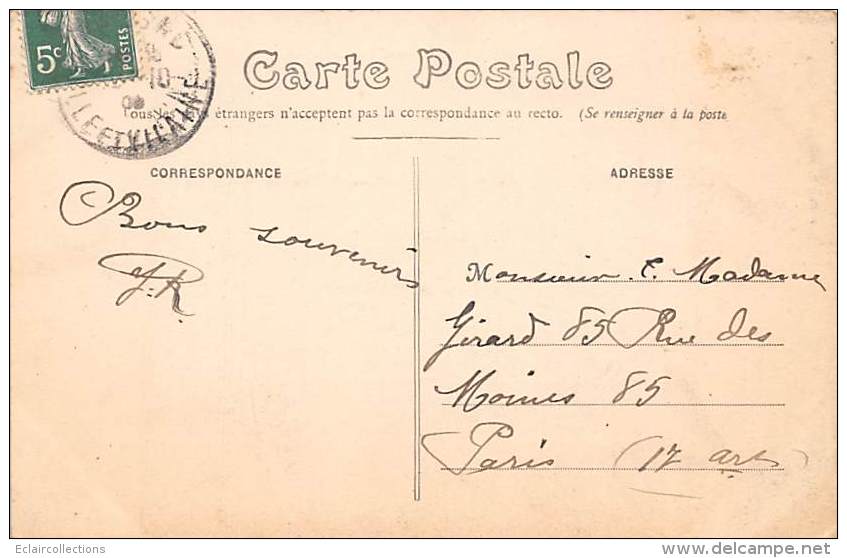 5c
POSTES
ILLE ET VILAINE
Carte Postale
étrangers n'acceptent pas la correspondance au recto. (Se renseigner à la poste
CORRESPONDANCE
ADRESSE
Bons souvenirs
J.R.
Monsieur &. Madame
Girard 85 Rue des
Moines 85
Paris (17 art
Eclaircollections
delcampe.net